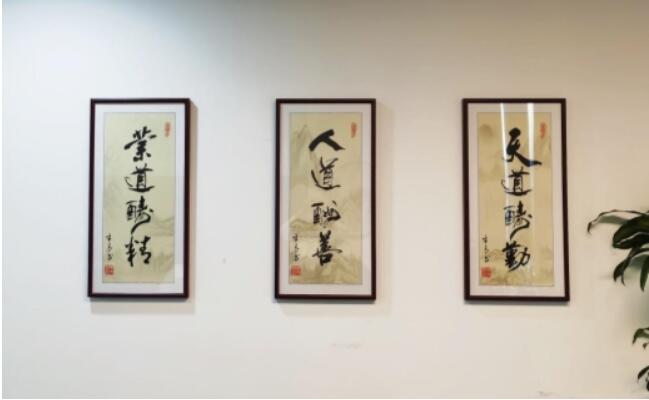 天道酬勤
人道酬善
業道酬精